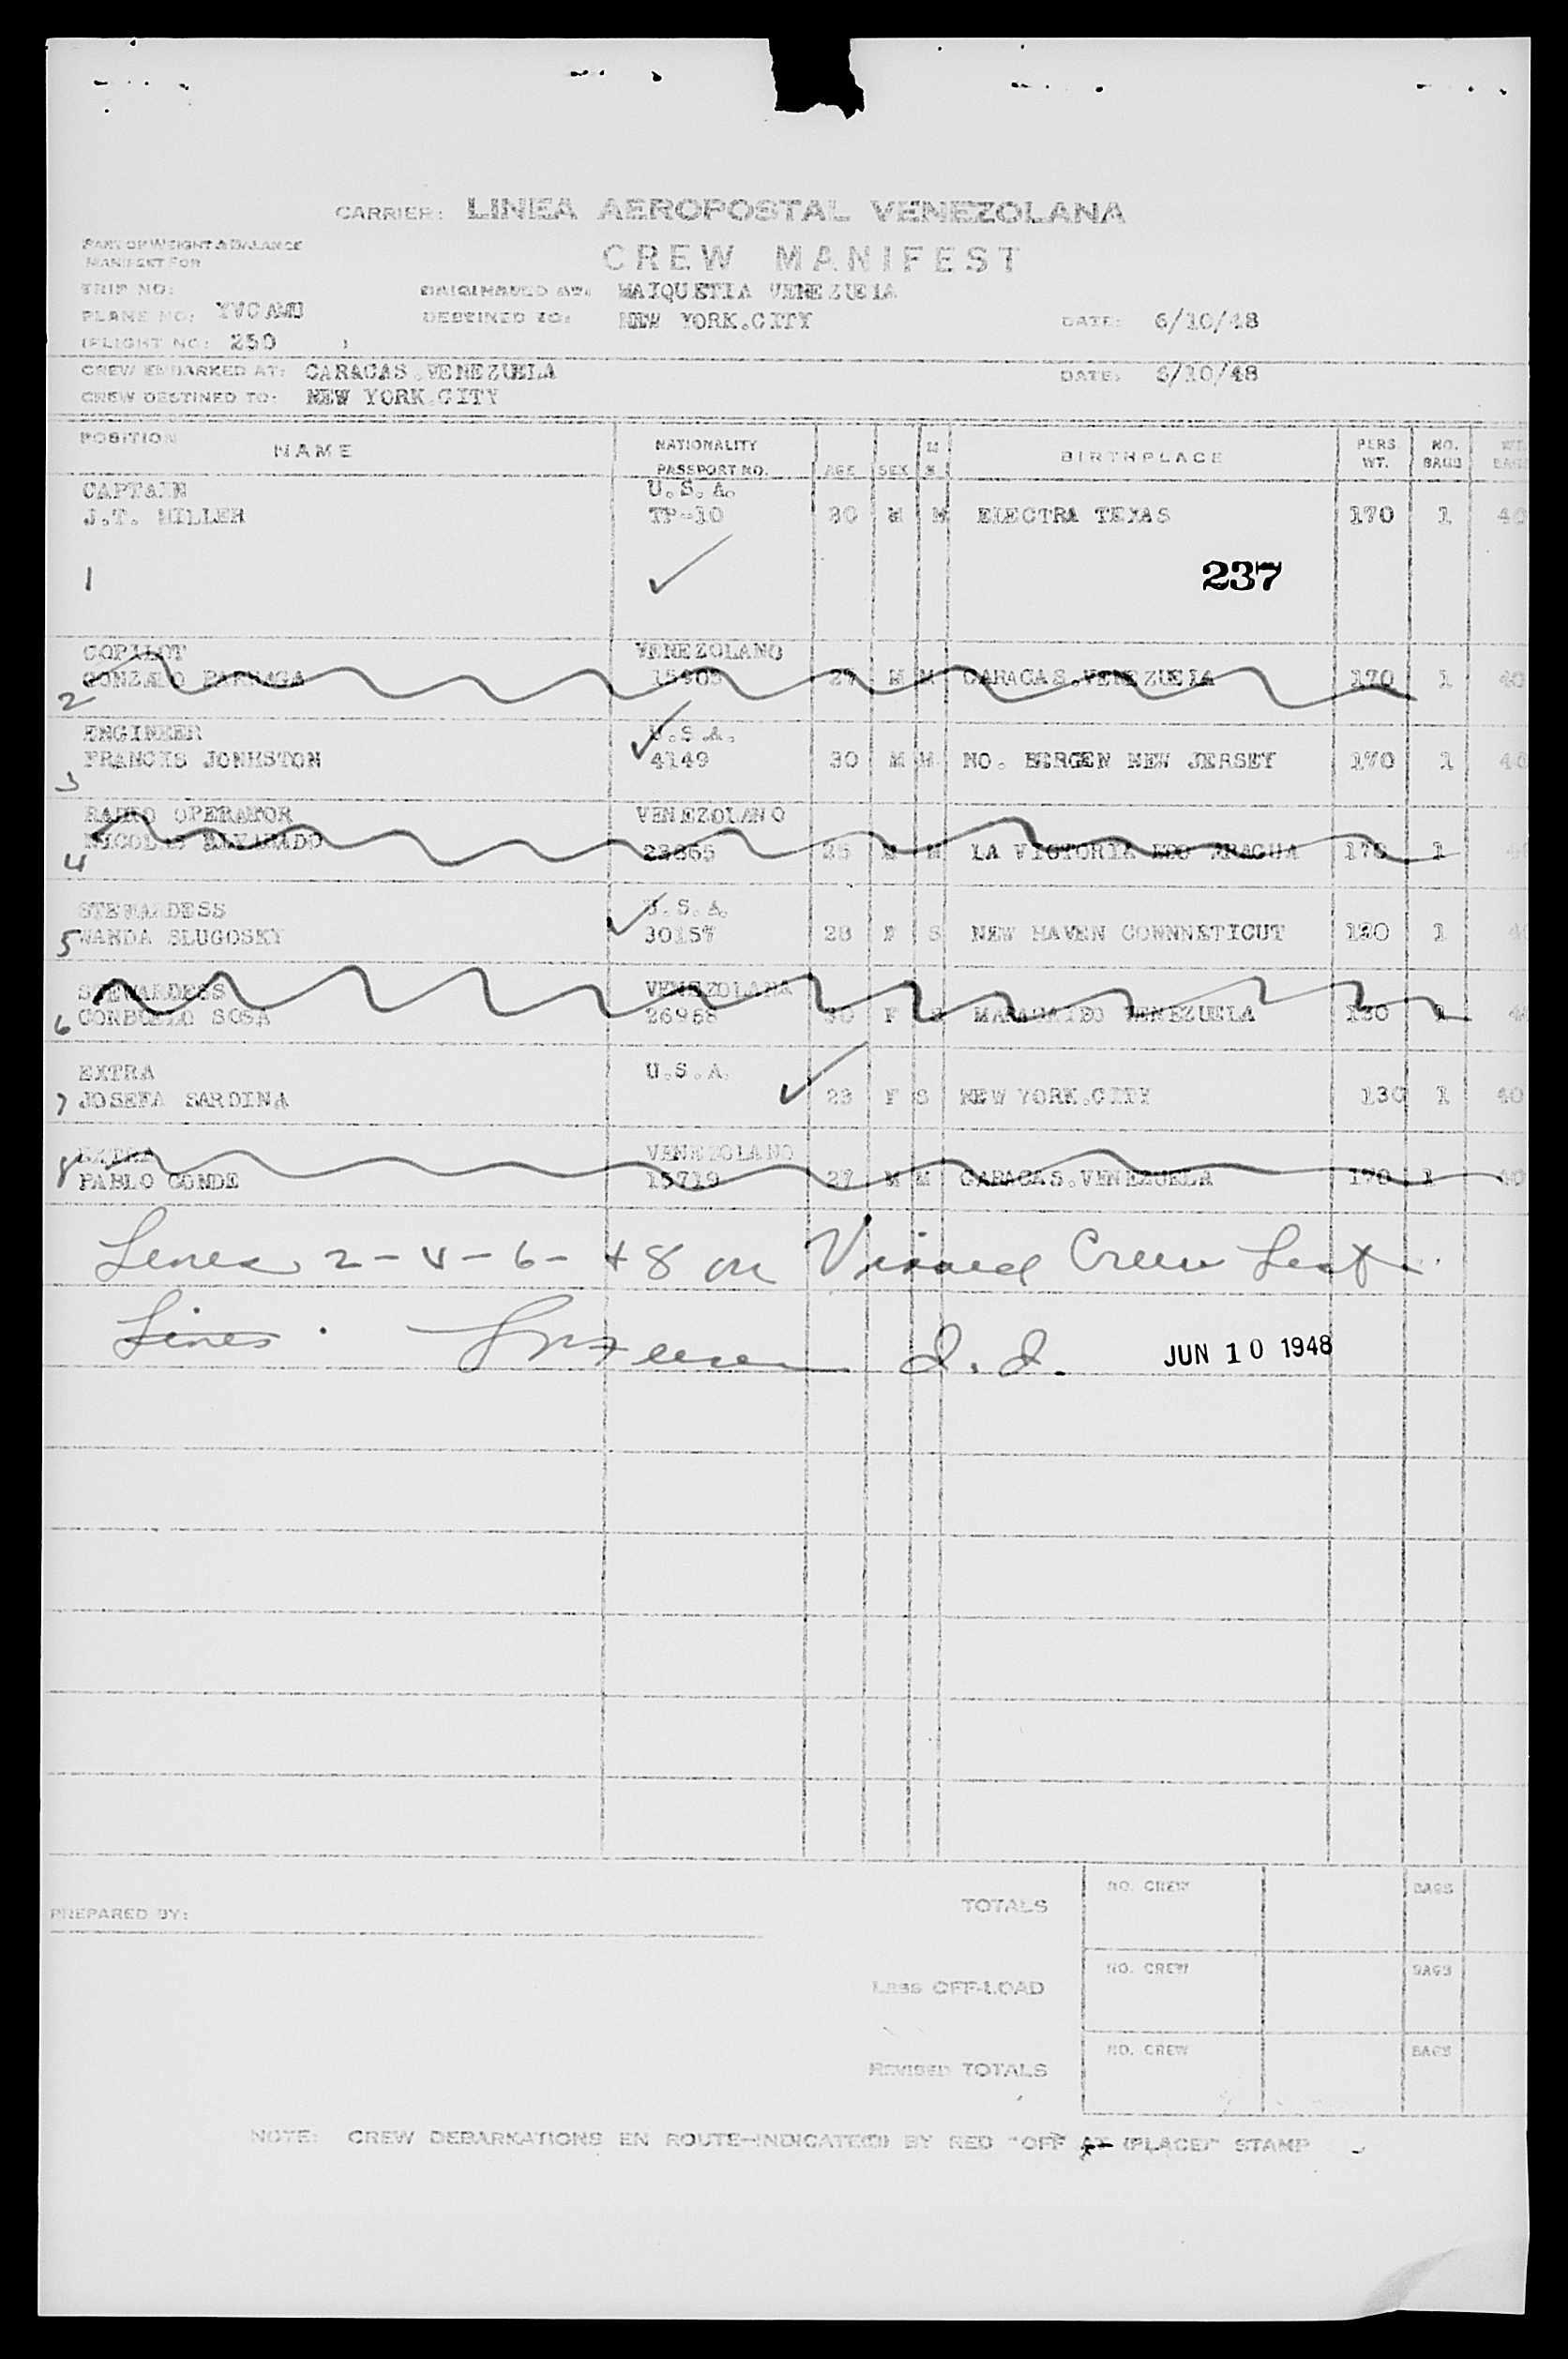 CARRIER: LINEA AEROPOSTAL VENEZOLANA
PART OF WEIGHT & BALANCE
MANIFEST FOR
CREW MANIFEST
TRIP NO:
MAIQUETIA VENEZUELA
PLANE NO: YVCAMU
DESTINED TO: NEW YORK.CITY
DATE: 6/10/48
(FLIGHT NO: 250 )
CREW EMBARKED AT: CARACAS.VENEZUELA
DATE: 6/10/48
CREW DESTINED TO: NEW YORK.CITY
POSITION NAME NATIONALITY PASSPORT NO. AGE SEX M S BIRTHPLACE PERS WT. NO. BAGS WT.
CAPTAIN U.S.A.
J.T. MILLER TP-10 30 M M ELECTRA TEXAS 170 1 40
1 237
COPILOT VENEZOLANO
2 GONZALO PARRAGA 27 M M CARACAS.VENEZUELA 170 1 40
ENGINEER U.S.A.
3 FRANCIS JONHSTON 4149 30 M M NO. BERGEN NEW JERSEY 170 1 40
RADIO OPERATOR VENEZOLANO
4 NICOLAS ALVARADO 23865 25 M M LA VICTORIA EDO ARAGUA 170 1
STEWARDESS U.S.A.
5 WANDA SLUGOSKY 30157 28 F S NEW HAVEN CONNNETICUT 120 1 40
STEWARDESS VENEZOLANA
6 SOSA 26958 30 F S MARACAIBO VENEZUELA 120 1
EXTRA U.S.A.
7 JOSEFA SARDINA 23 F S NEW YORK.CITY 130 1 40
EXTRA VENEZOLANO
8 PABLO CONDE 15719 27 M M CARACAS.VENEZUELA 170 1 40
Lines 2-4-6- +8 on Visaed Crew List.
Lines.
JUN 10 1948
PREPARED BY:
TOTALS NO. CREW BAGS
LESS OFF-LOAD NO. CREW BAGS
REVISED TOTALS NO. CREW BAGS
NOTE: CREW DEBARKATIONS EN ROUTE-INDICATE(D) BY RED "OFF AT (PLACE)" STAMP